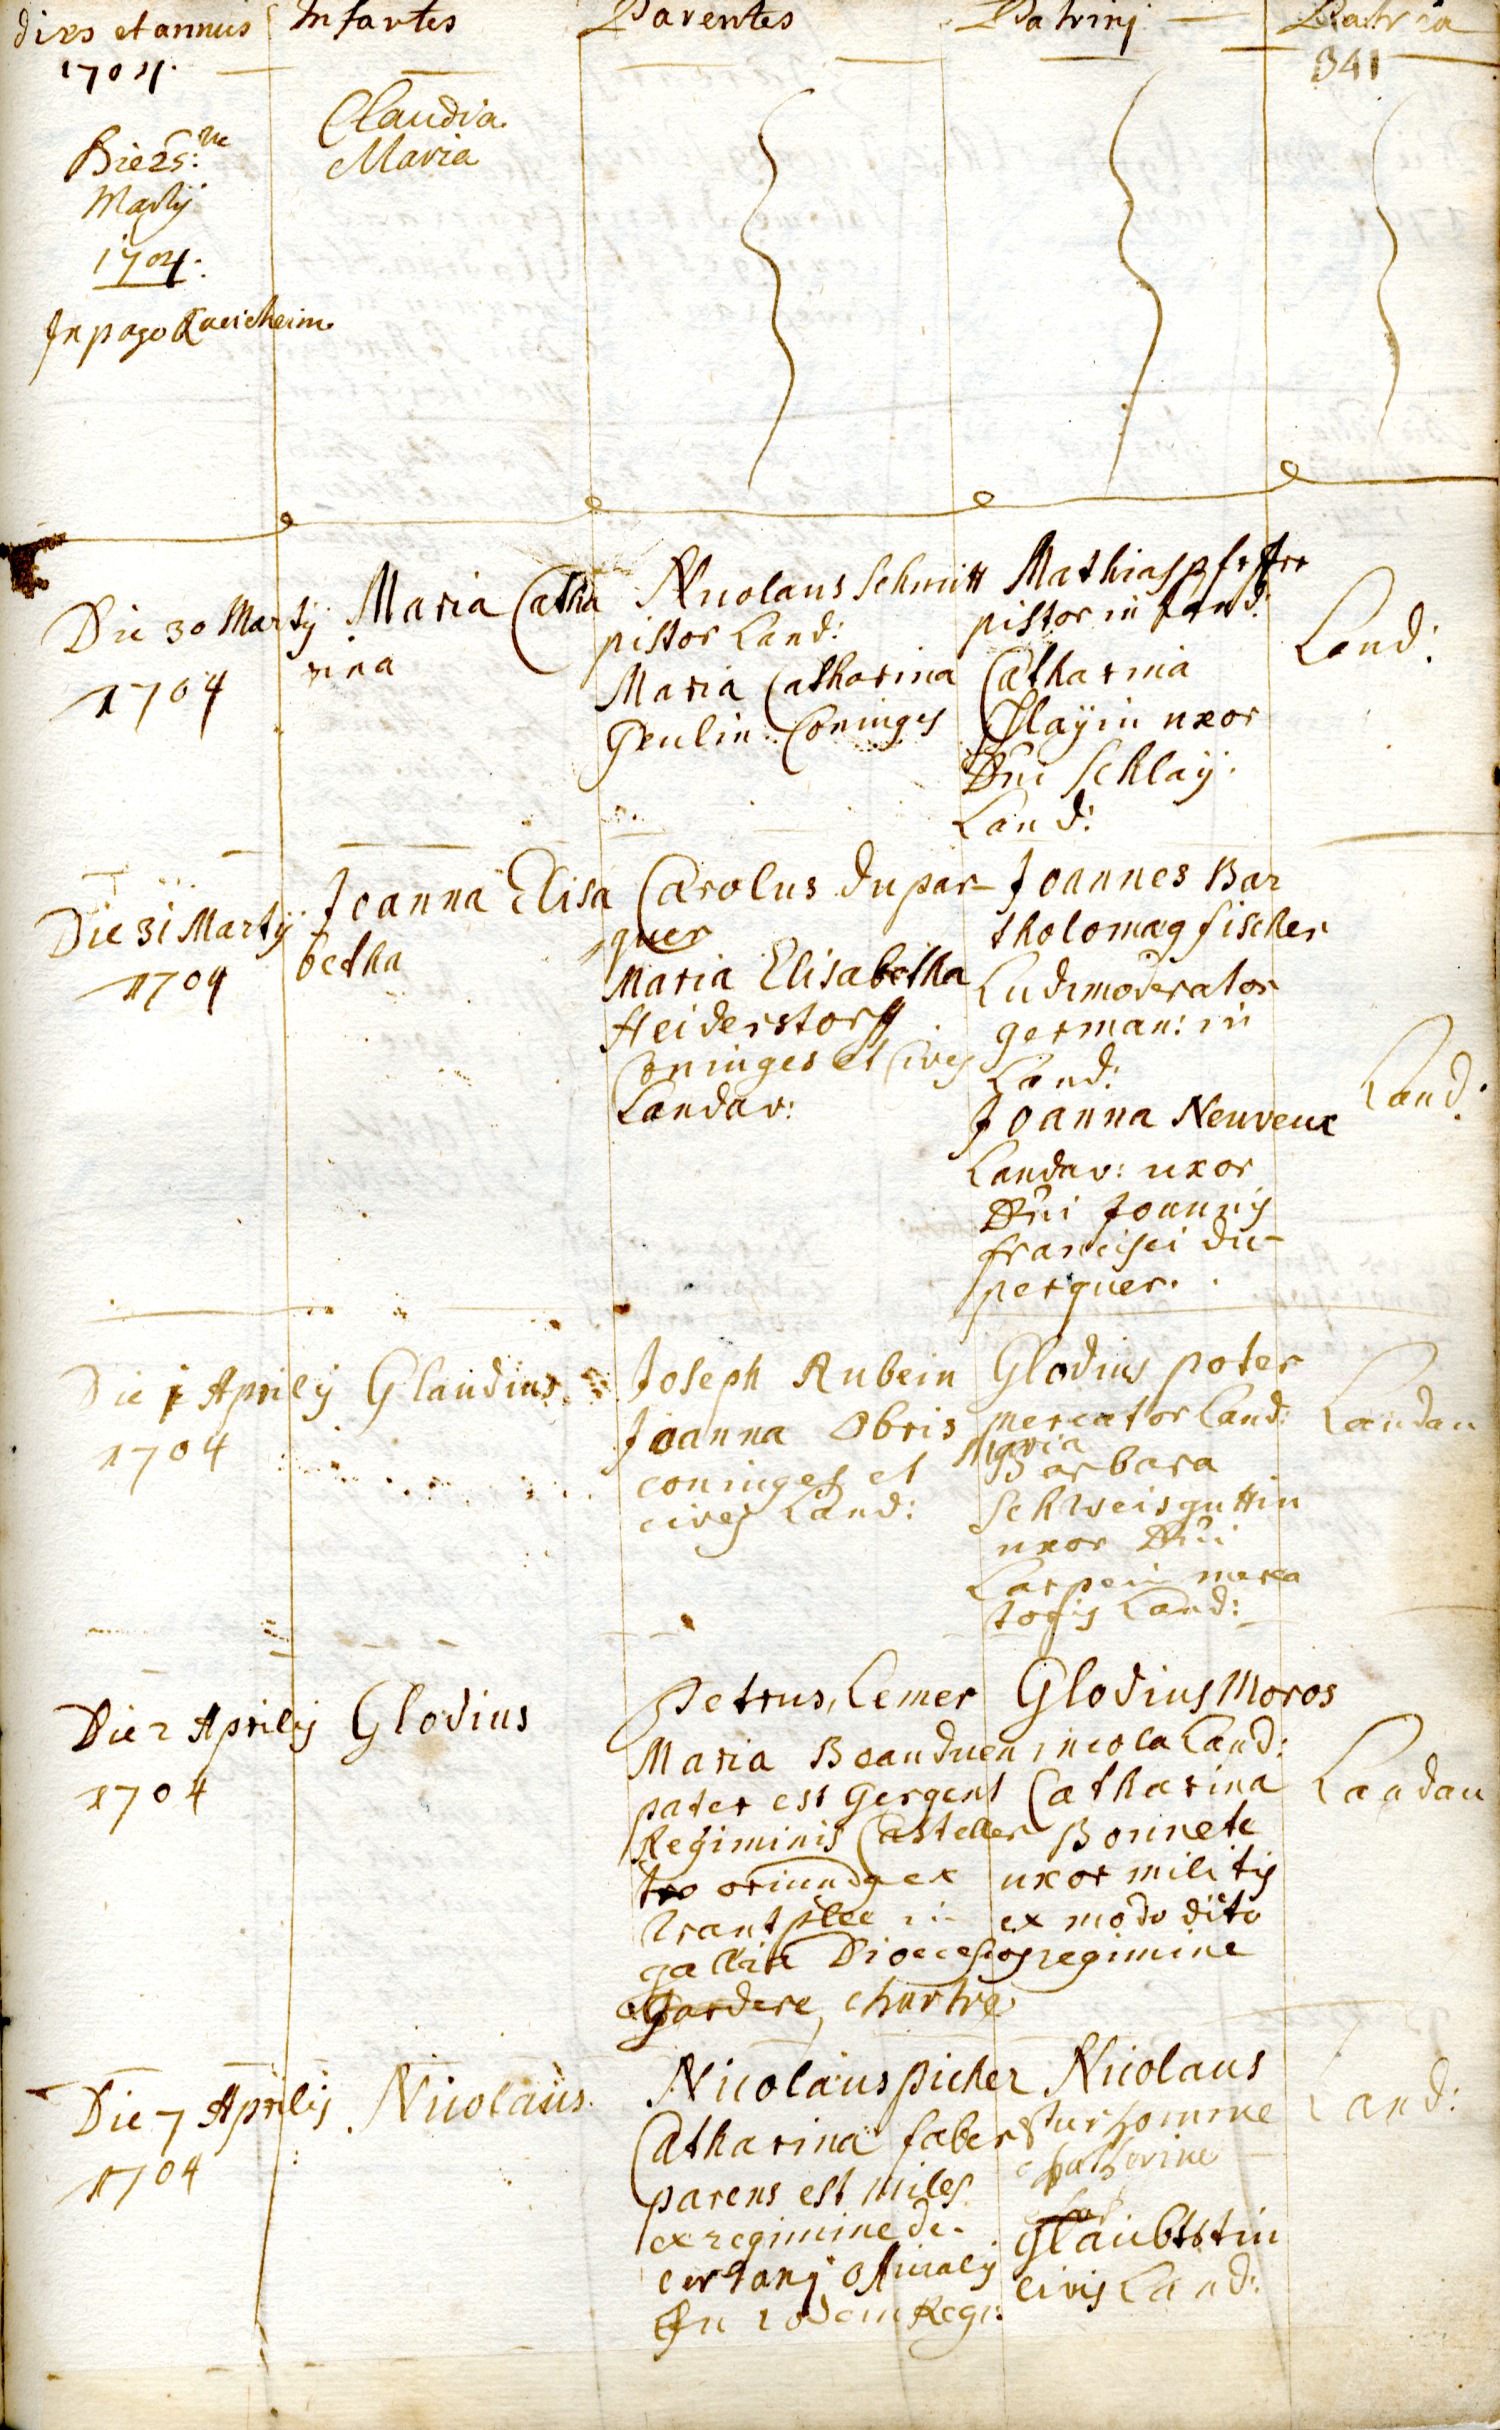 dies et annus Infantes Parentes Patrinj Patria
1704. 341
Claudia
Maria
Die 25: ta
Martij
1704.
In pago
Die 30 Martij
1704
Maria Catha
rina
Nicolaus Schmitt
pistor Land:
Maria Catharina
Geulin Coniuges
Mathias
pistor in Land:
Catharina
Slaÿin uxor
Dni Schlaÿ.
Land:
Land:
Die 31 Martij
1704
Joanna Elisa
betha
Carolus dupar-
quer
Maria Elisabetha
Heiderstorff
Coniuges et Cives
Landav:
Joannes Bar
tholomaeg fischer
Ludimoderator
german: in
Land:
Joanna Neuveux
Landav: uxor
Dni Joannis
francisci du-
perquer.
Land:
Die 1 Aprilis
1704
Glaudius
Joseph Rubein
Joanna Obris
coniuges et
cives Land:
Glodius poter
mercator Land:
Maria
Barbara
Schweisguttin
uxor Dni
Carpein merca
toris Land:
Landau
Die 2 Aprilis
1704
Glodius
Petrus Lemer
Maria Beauduen
pater est Gergent
Regiminis Casteller
tro oriundg ex
in
gallia Dioecesios
chartre
Glodius Moros
incola Land:
Catharina
Bonnete
uxor militis
ex modo dito
regimine
Landau
Die 7 Aprilis
1704
Nicolaus.
Nicolaus picher
Catharina faber
parens est miles
ex regimine de
officialis
In eodem Regi:
Nicolaus
Catherine
Glaubtstin
civis Land:
Land: